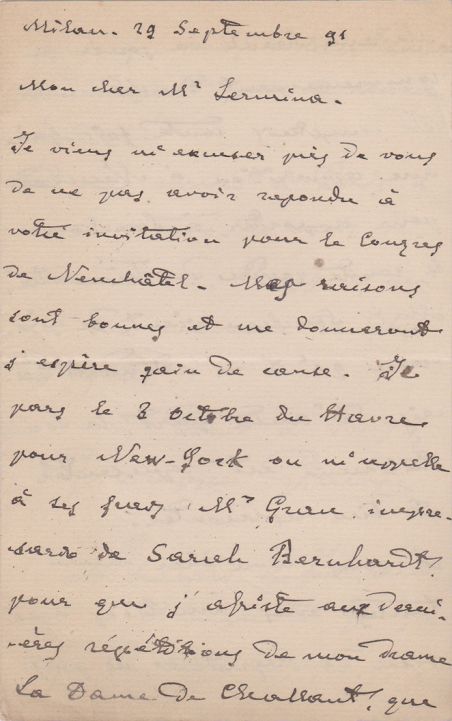 Milan. 29 Septembre 91
Mon cher Mr Lermina.
Je viens m'excuser près de vous
de ne pas avoir repondu à
votre invitation pour le Congres
de Neuchâtel. Mes raisons
sont bonnes et me donneront
j'espère gain de cause. Je
pars le 3 Octobre du Havre
pour New-York ou m'appelle
à ses frais Mr Grau impre-
sario de Sarah Bernhardt,
pour que j'assiste aux derni-
ères répétitions de mon drame
La Dame de Challant, que